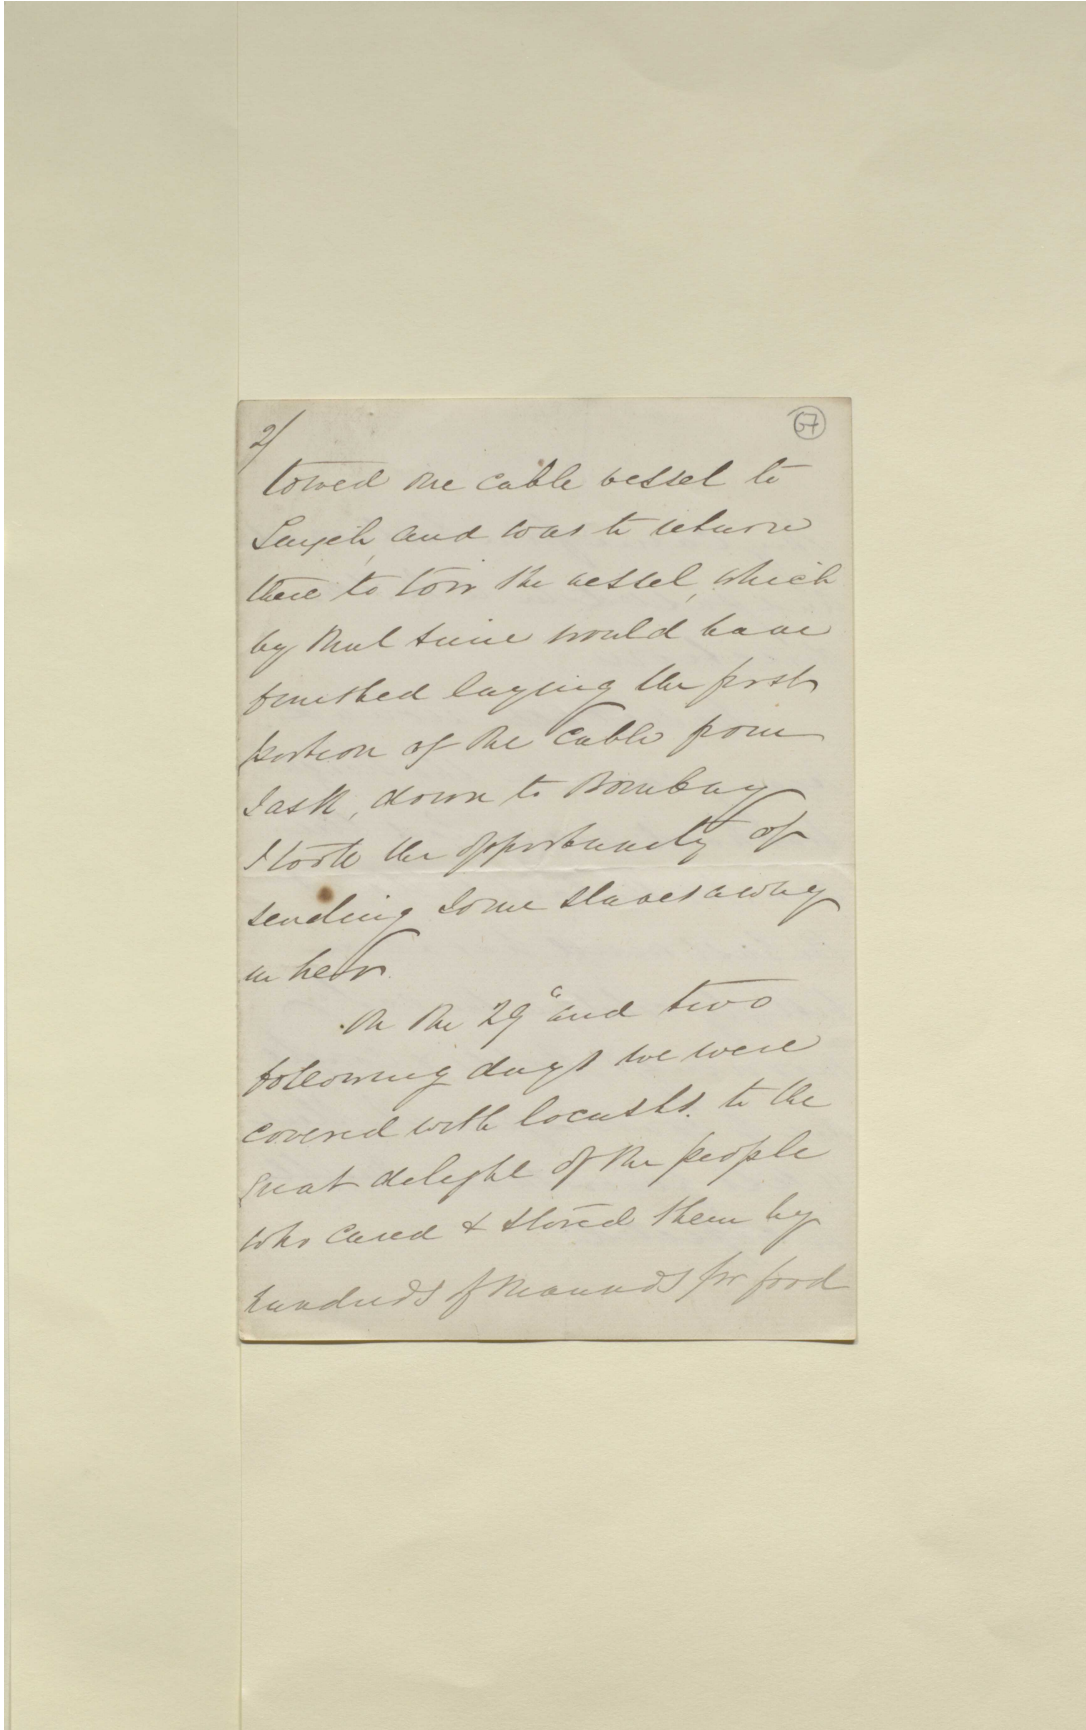 2/
67
towed one cable vessel to
Lingeh, and was to return
there to tow the vessel, which
by that time would have
finished laying the first
portion of the cable from
Jask, down to Bombay
I took the opportunity of
sending some slaves away
in her.
On the 29th and two
following days we were
covered with locusts. to the
great delight of the people
who cured & stored them by
hundreds of maunds for food